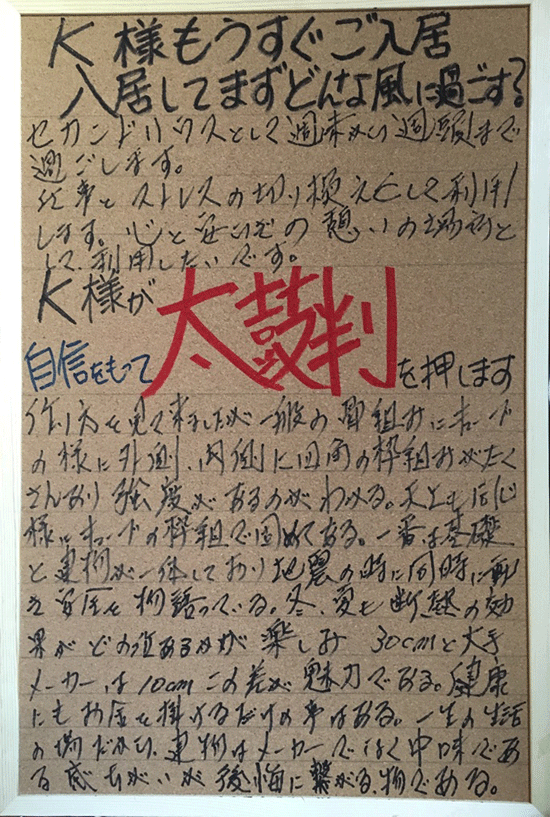 K様もうすぐご入居
入居してまずどんな風に過ごす?
セカンドハウスとして週末から週頭まで
過ごします。
仕事とストレスの切り換えとして利用
します。心と安らぎの憩いの場所と
して利用したいです。
K様が
自信をもって太鼓判を押します
作り方を見て来ましたが一般の骨組みにキューブ
の様に外側、内側に四角の枠組みがたく
さんあり強度があるのがわかる。天上も同じ
様にキューブの枠組で固めてある。一番は基礎
と建物が一体しており地震の時に同時に動
き安定を物語っている。冬、夏も断熱の効
果がどの位あるかが楽しみ 30cmと大手
メーカーは10cmこの差が魅力である。健康
にもお金を掛けるだけの事はある。一生の生活
の場だから、建物はメーカーでなく中味であ
る感ちがいが後悔に繋がる物である。